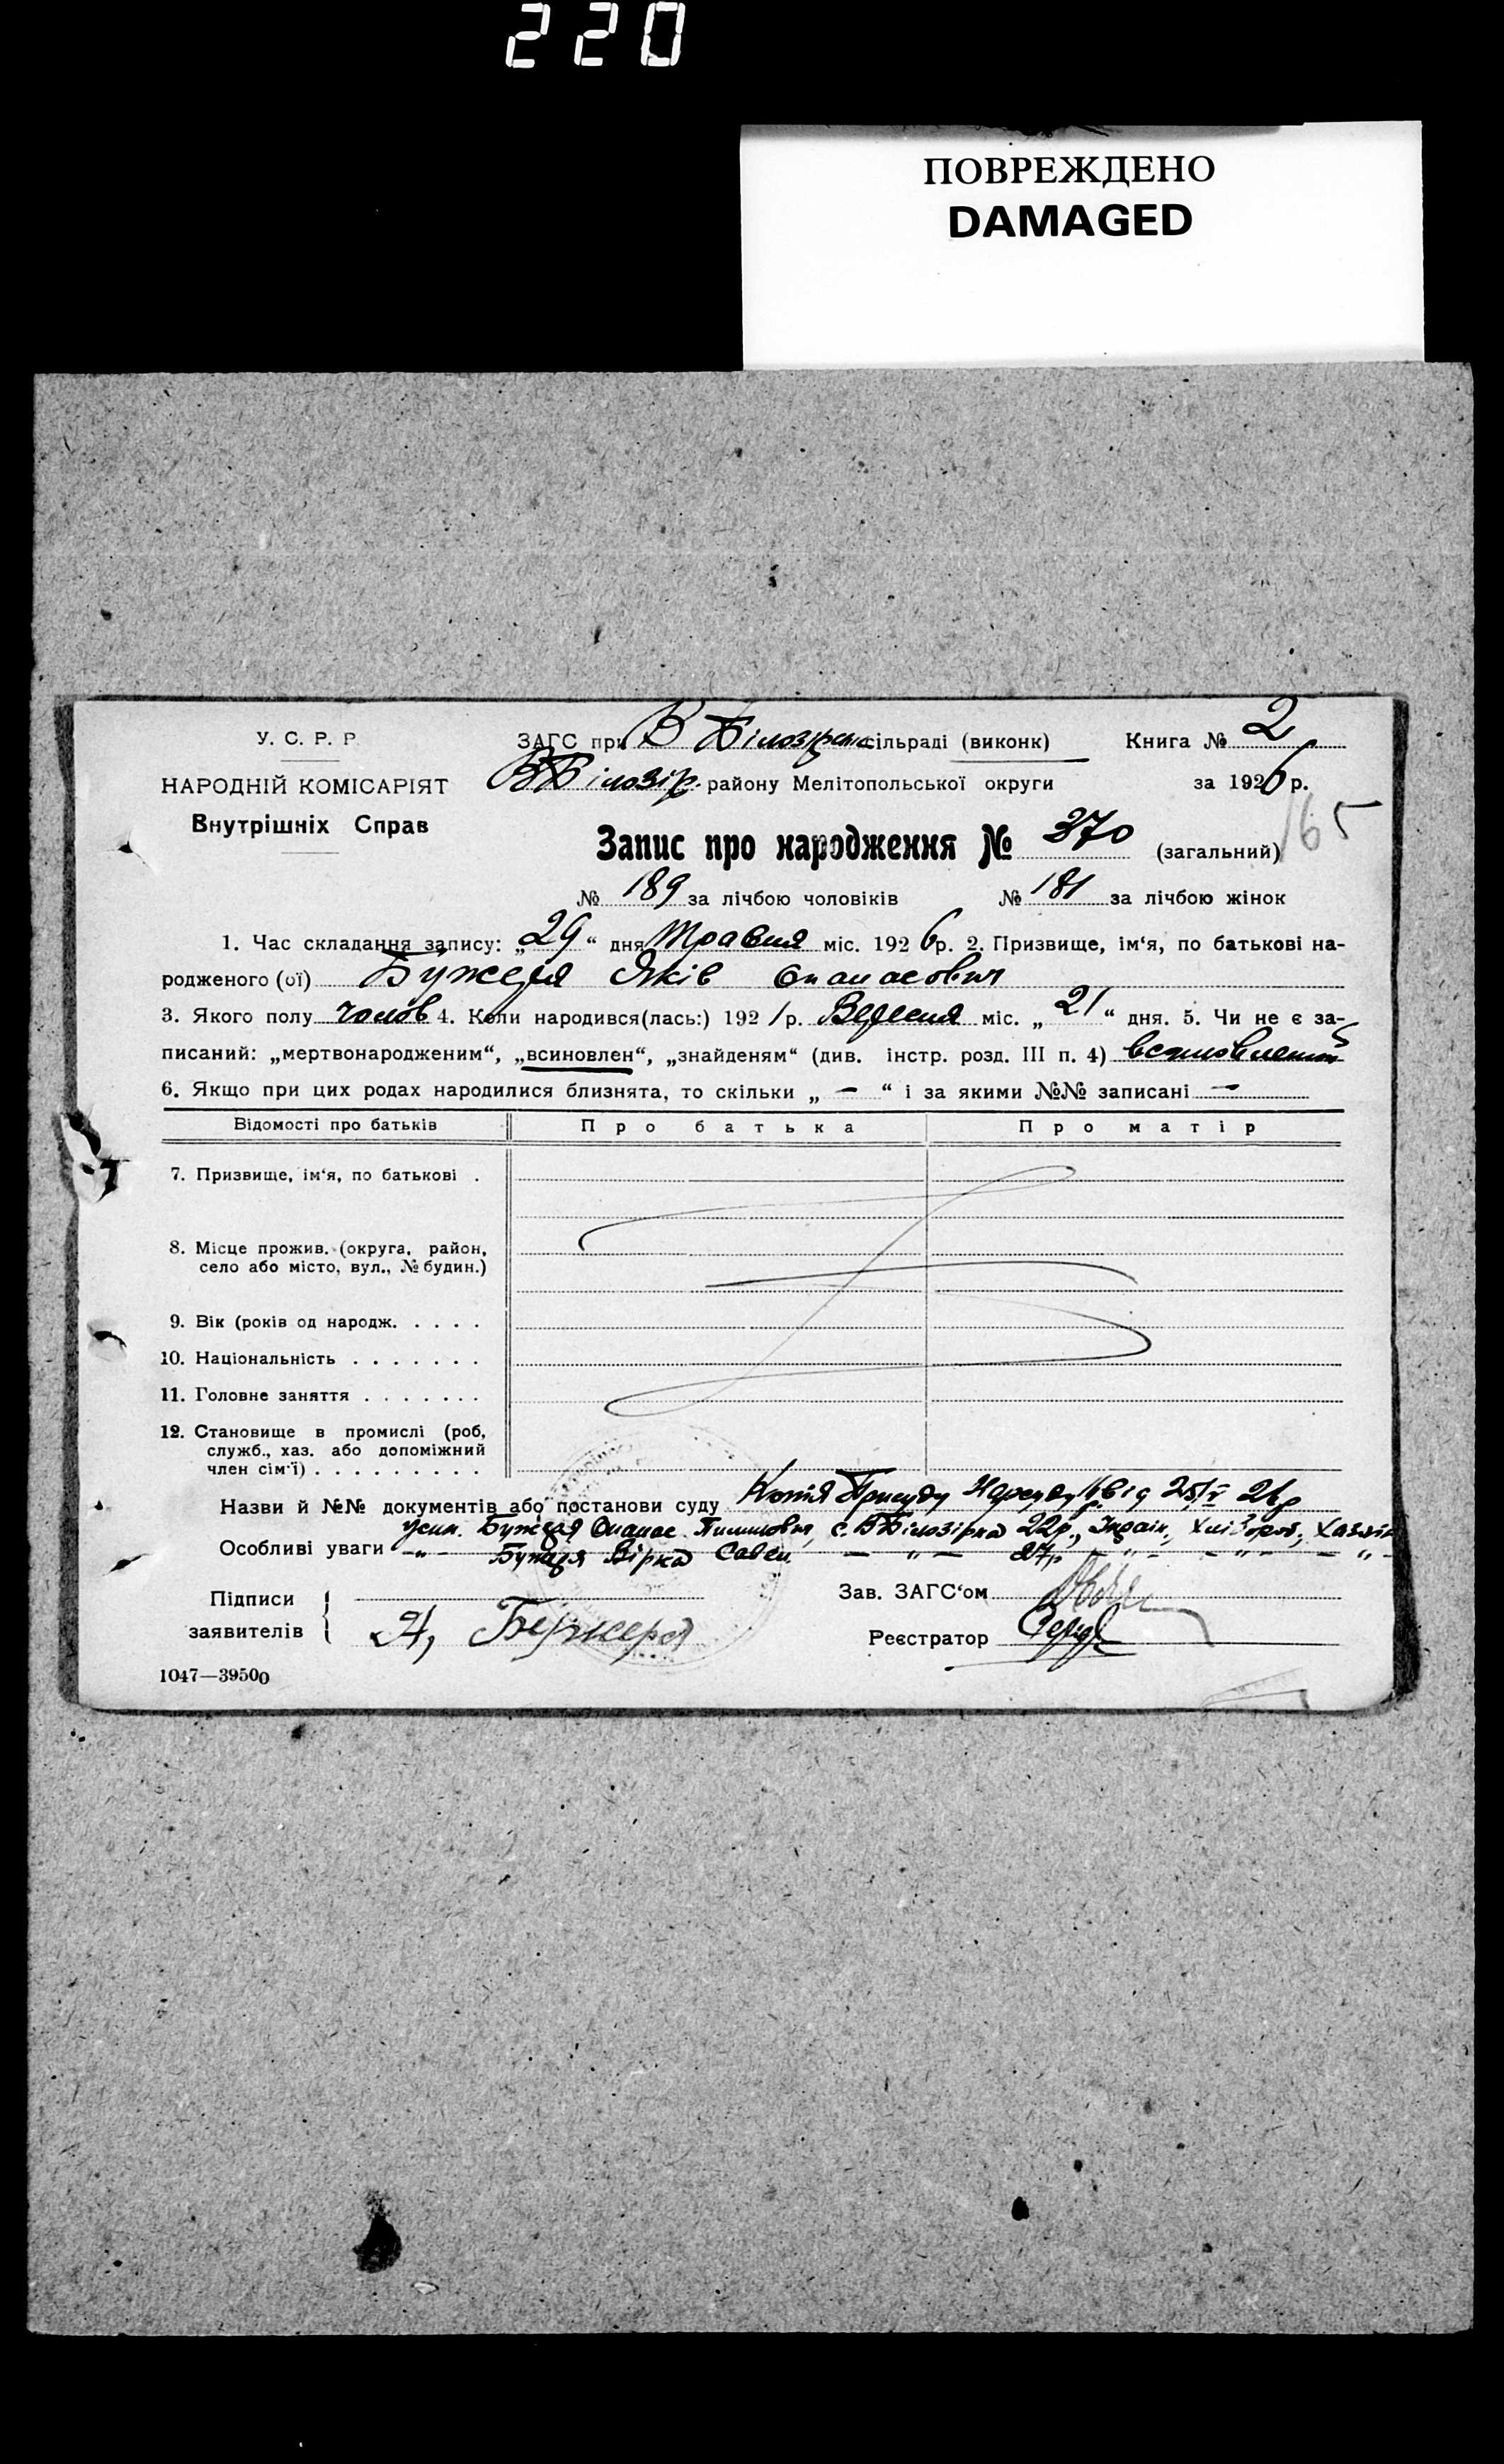 220
ПОВРЕЖДЕНО
DAMAGED
У. С. Р. Р.
НАРОДНІЙ КОМІСАРІЯТ
Внутрішніх Справ
ЗАГС при В Білозірськ сільраді (виконк) Книга № 2
ВБілозір. району Мелітопольської округи за 1926 р.
165
Запис про народження № 370 (загальний)
№ 189 за лічбою чоловіків № 181 за лічбою жінок
1. Час складання запису: „29“ дня Травня міс. 1926 р. 2. Призвище, ім‘я, по батькові на-
родженого (ої) Яків Опанасович
3. Якого полу чолов 4. Коли народився(лась:) 1921 р. Вересня міс. „21“ дня. 5. Чи не є за-
писаний: „мертвонародженим“, „всиновлен“, „знайденям“ (див. інстр. розд. III п. 4) всиновлений
6. Якщо при цих родах народилися близнята, то скільки „ — “ і за якими №№ записані —
Відомості про батьків Про батька Про матір
7. Призвище, ім‘я, по батькові .
8. Місце прожив. (округа, район,
село або місто, вул., № будин.)
9. Вік (років од народж. . . . .
10. Національність . . . . . . .
11. Головне заняття . . . . . . .
12. Становище в промислі (роб,
служб., хаз. або допоміжний
член сім‘ї) . . . . . . . . .
Назви й №№ документів або постанови суду Копія Присуду Нарсуду від 25/V 26р
Опанас с. ВБілозірка 22р., Україн., Хлібороб, Хазяїн
Особливі уваги —„— Вірка Сав — „ — 27р — „ — — „ — — „ —
Підписи
заявителів
Зав. ЗАГС‘ом
Реєстратор
1047—39500